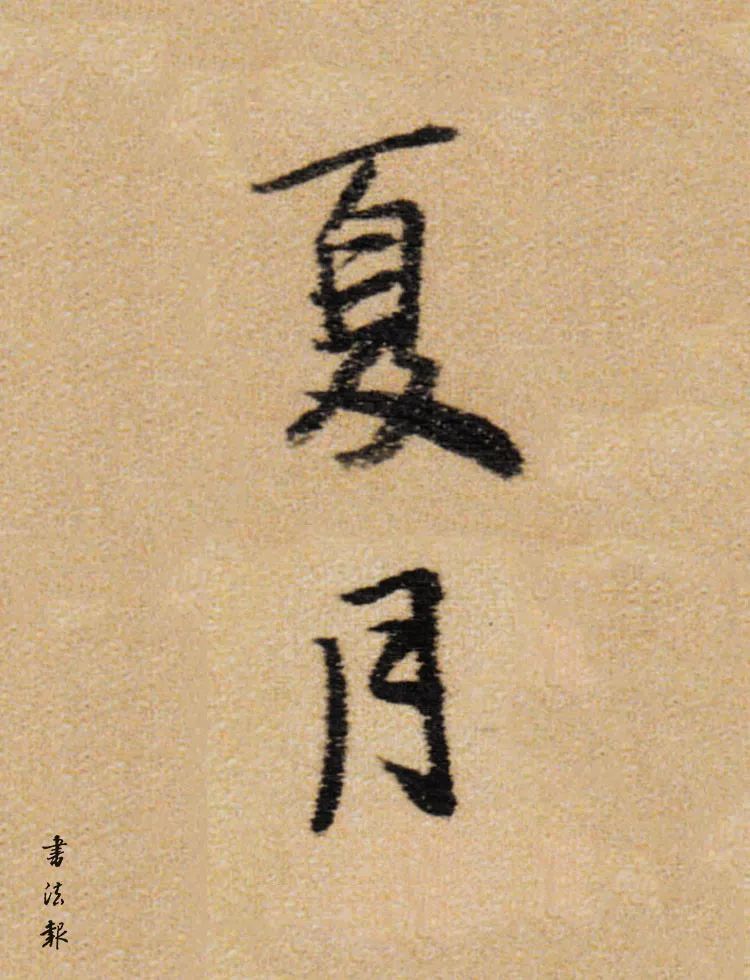 夏月
書法報